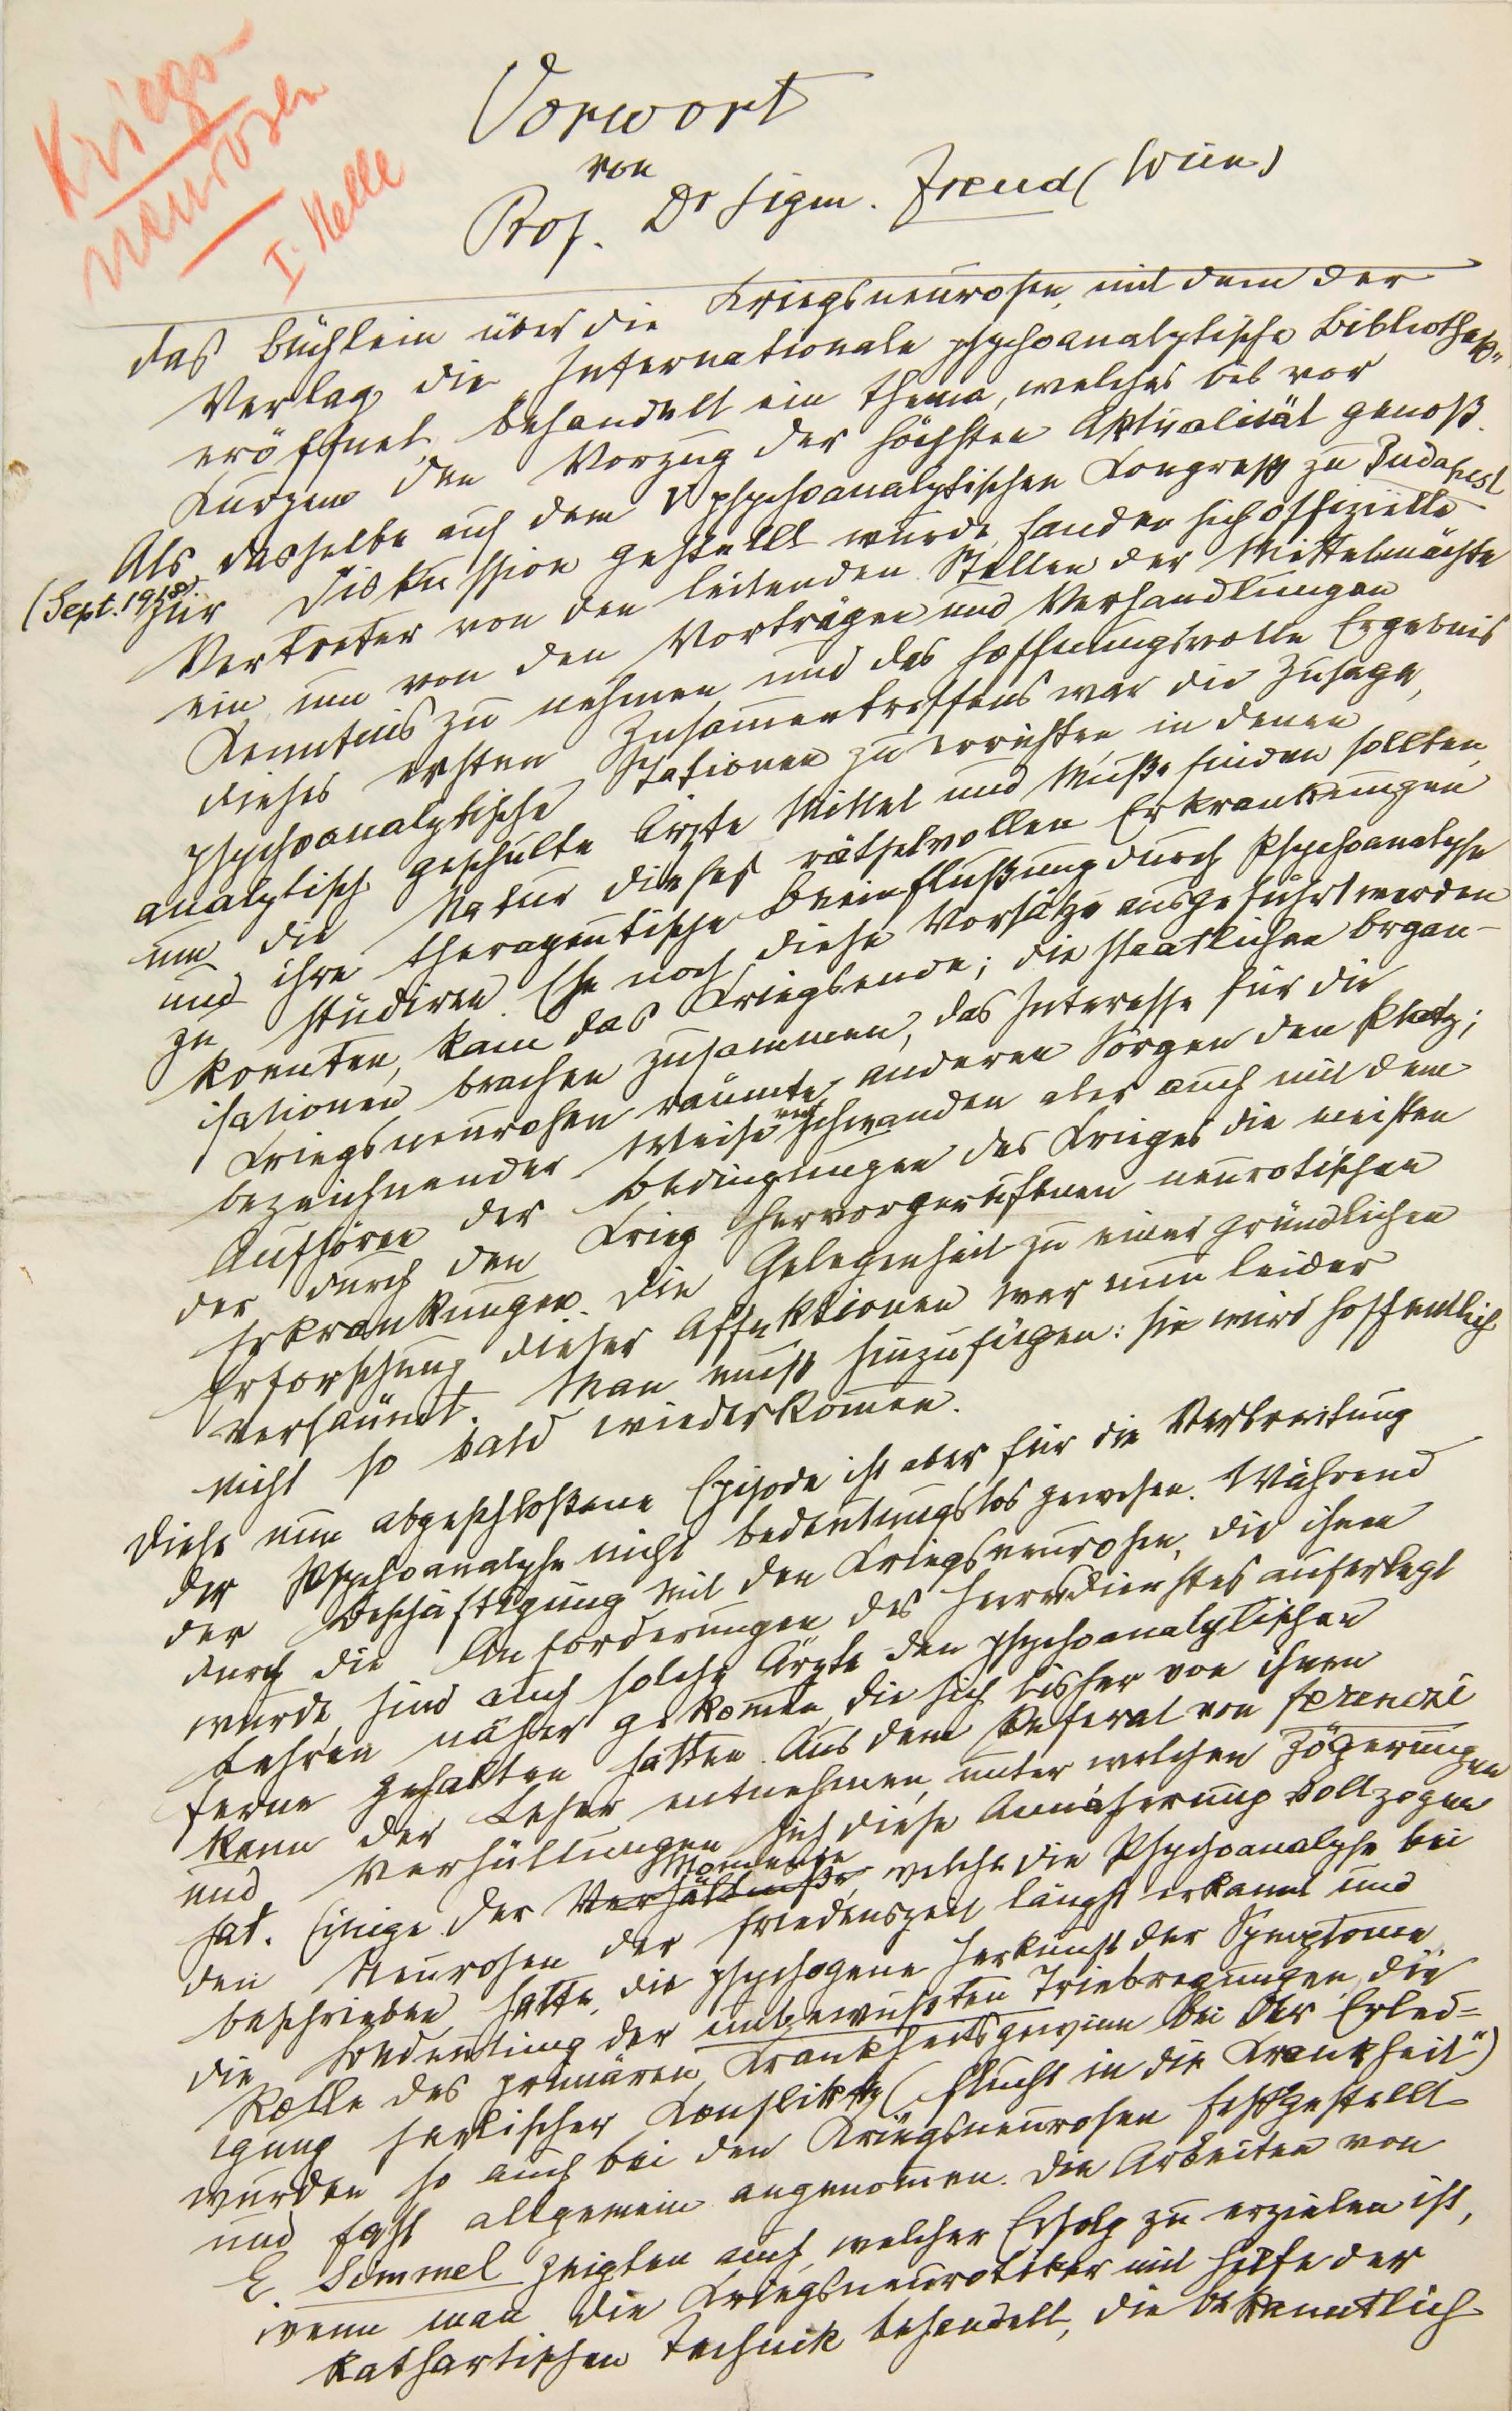 Kriegs-
neurosen
I. Stelle
Vorwort
von
Prof. Dr Sigm. Freud (Wien)
Das Büchlein über die Kriegsneurosen, mit dem der
Verlag die „Internationale psychoanalytische Bibliothek"
eröffnet, behandelt ein Thema, welches bis vor
Kurzem den Vorzug der höchsten Aktualität genoß.
Als dasselbe auf dem V psychoanalytischen Kongreß zu Budapest
(Sept. 1918) zur Diskussion gestellt wurde, fanden sich offizielle
Vertreter von den leitenden Stellen der Mittelmächte
ein, um von den Vorträgen und Verhandlungen
Kenntnis zu nehmen und das hoffnungsvolle Ergebnis
dieses ersten Zusammentreffens war die Zusage,
psychoanalytische Stationen zu errichten, in denen
analytisch geschulte Ärzte Mittel und Muße finden sollten,
um die Natur dieser rätselvollen Erkrankungen
und ihre therapeutische Beeinflußung durch Psychoanalyse
zu studiren. Ehe noch diese Vorsätze ausgeführt werden
konnten, kam das Kriegsende; die staatlichen Organ-
isationen brachen zusammen, das Interesse für die
Kriegsneurosen räumte anderen Sorgen den Platz;
bezeichnender Weise verschwanden aber auch mit dem
Aufhören der Bedingungen des Krieges die meisten
der durch den Krieg hervorgerufenen neurotischen
Erkrankungen. Die Gelegenheit zu einer gründlichen
Erforschung dieser Affektionen war nun leider
versäumt. Man muß hinzufügen: sie wird hoffentlich
nicht so bald wiederkommen.
Diese nun abgeschloßene Episode ist aber für die Verbreitung
der Psychoanalyse nicht bedeutungslos gewesen. Während
der Beschäftigung mit den Kriegsneurosen, die ihnen
durch die Anforderungen des Heeresdienstes auferlegt
wurde, sind auch solche Ärzte den psychoanalytischen
Lehren näher gekommen, die sich bisher von ihnen
ferne gehalten hatten. Aus dem Referat von Ferenczi
kann der Leser entnehmen, unter welchen Zögerungen
und Verhüllungen sich diese Annäherung vollzogen
hat. Einige der Verhältniße Momente, welche die Psychoanalyse bei
den Neurosen der Friedenszeit längst erkannt und
beschrieben hatte, die psychogene Herkunft der Symptome,
die Bedeutung der unbewußten Triebregungen, die
Rolle des primären Krankheitsgewinns bei der Erled=
igung seelischer Konflikte („Flucht in die Krankheit")
wurden so auch bei den Kriegsneurosen festgestellt
und fast allgemein angenommen. Die Arbeiten von
E. Simmel zeigten auch, welcher Erfolg zu erzielen ist,
wenn man die Kriegsneurotiker mit Hilfe der
kathartischen Technik behandelt, die bekanntlich